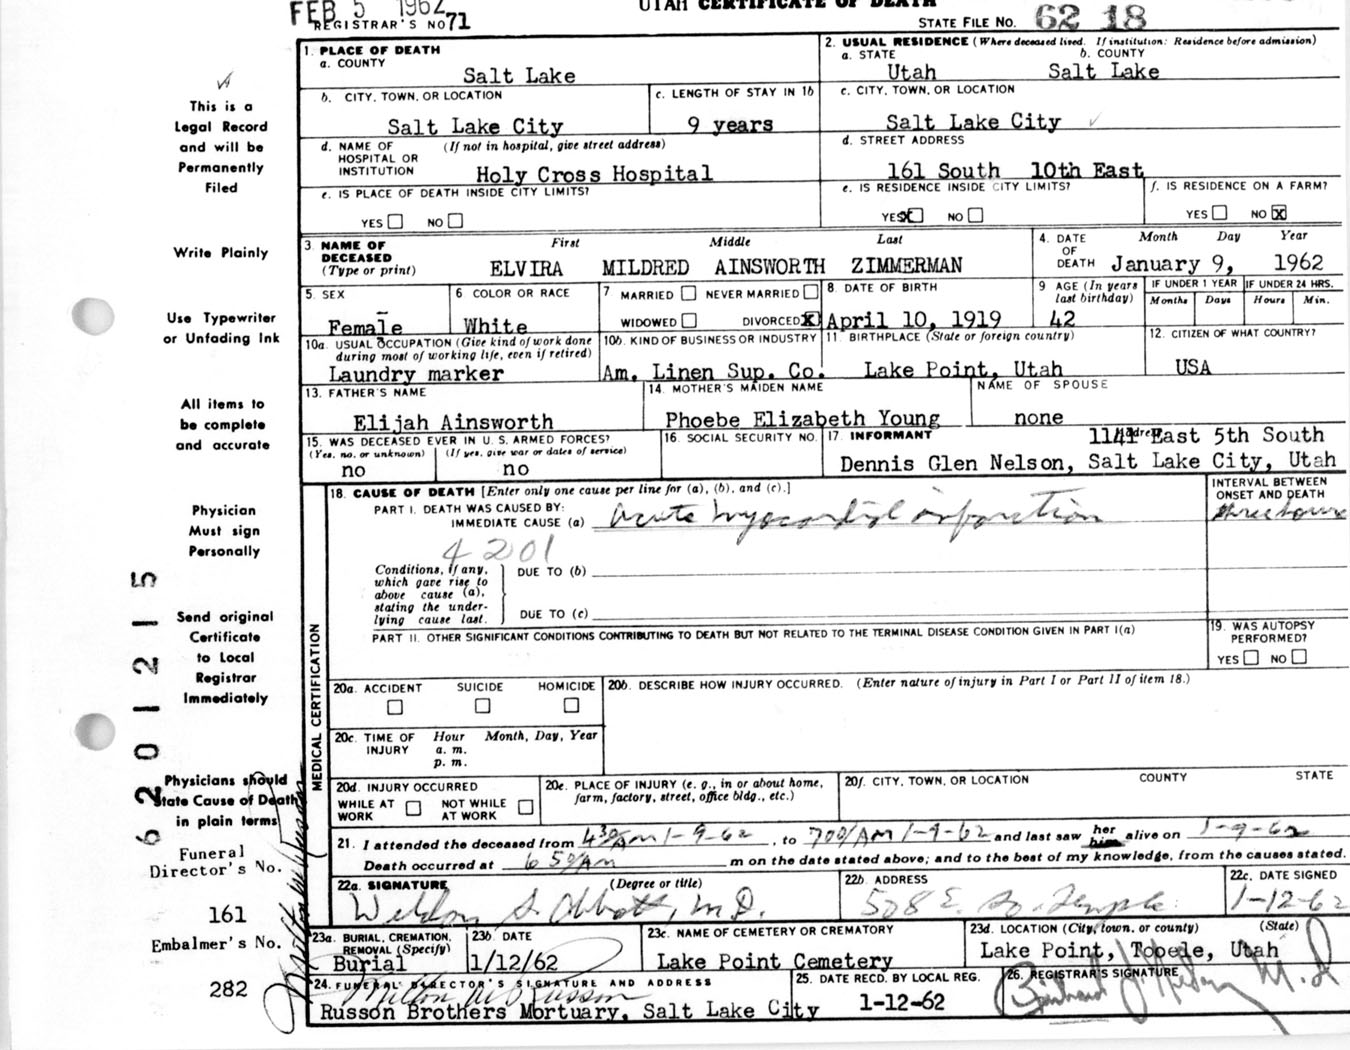 FEB 5 1962
UTAH CERTIFICATE OF DEATH
REGISTRAR'S NO 71
STATE FILE NO. 62 18
This is a
Legal Record
and will be
Permanently
Filed
Write Plainly
Use Typewriter
or Unfading Ink
All items to
be complete
and accurate
Physician
Must sign
Personally
Send original
Certificate
to Local
Registrar
Immediately
Physicians should
State Cause of Death
in plain terms
Funeral
Director's No.
161
Embalmer's No.
282
6201215
1. PLACE OF DEATH
a. COUNTY
Salt Lake
2. USUAL RESIDENCE (Where deceased lived. If institution: Residence before admission)
a. STATE b. COUNTY
Utah Salt Lake
b. CITY, TOWN, OR LOCATION
Salt Lake City
c. LENGTH OF STAY IN 1b
9 years
c. CITY, TOWN, OR LOCATION
Salt Lake City
d. NAME OF (If not in hospital, give street address)
HOSPITAL OR
INSTITUTION Holy Cross Hospital
d. STREET ADDRESS
161 South 10th East
e. IS PLACE OF DEATH INSIDE CITY LIMITS?
YES NO
e. IS RESIDENCE INSIDE CITY LIMITS?
YES X NO
f. IS RESIDENCE ON A FARM?
YES NO X
3. NAME OF DECEASED (Type or print)
First Middle Last
ELVIRA MILDRED AINSWORTH ZIMMERMAN
4. DATE OF DEATH Month Day Year
January 9, 1962
5. SEX
Female
6 COLOR OR RACE
White
7 MARRIED NEVER MARRIED
WIDOWED DIVORCED X
8. DATE OF BIRTH
April 10, 1919
9 AGE (In years last birthday)
42
IF UNDER 1 YEAR IF UNDER 24 HRS.
Months Days Hours Min.
10a. USUAL OCCUPATION (Give kind of work done
during most of working life, even if retired)
Laundry marker
10b. KIND OF BUSINESS OR INDUSTRY
Am. Linen Sup. Co.
11. BIRTHPLACE (State or foreign country)
Lake Point, Utah
12. CITIZEN OF WHAT COUNTRY?
USA
13. FATHER'S NAME
Elijah Ainsworth
14. MOTHER'S MAIDEN NAME
Phoebe Elizabeth Young
NAME OF SPOUSE
none
15. WAS DECEASED EVER IN U. S. ARMED FORCES?
(Yes, no, or unknown) (If yes, give war or dates of service)
no no
16. SOCIAL SECURITY NO.
17. INFORMANT 1141 East 5th South
Dennis Glen Nelson, Salt Lake City, Utah
MEDICAL CERTIFICATION
18. CAUSE OF DEATH [Enter only one cause per line for (a), (b), and (c).]
PART I. DEATH WAS CAUSED BY:
IMMEDIATE CAUSE (a) acute myocardial infarction
INTERVAL BETWEEN
ONSET AND DEATH
three hours
4201
Conditions, if any,
which gave rise to
above cause (a),
stating the under-
lying cause last.
DUE TO (b)
DUE TO (c)
PART II. OTHER SIGNIFICANT CONDITIONS CONTRIBUTING TO DEATH BUT NOT RELATED TO THE TERMINAL DISEASE CONDITION GIVEN IN PART I(a)
19. WAS AUTOPSY
PERFORMED?
YES NO
20a. ACCIDENT SUICIDE HOMICIDE
20b. DESCRIBE HOW INJURY OCCURRED. (Enter nature of injury in Part I or Part II of item 18.)
20c. TIME OF INJURY Hour Month, Day, Year
a. m.
p. m.
20d. INJURY OCCURRED
WHILE AT WORK NOT WHILE AT WORK
20e. PLACE OF INJURY (e. g., in or about home,
farm, factory, street, office bldg., etc.)
20f. CITY, TOWN, OR LOCATION COUNTY STATE
21. I attended the deceased from 4 30 AM 1-9-62, to 700 AM 1-9-62 and last saw her him alive on 1-9-62
Death occurred at 6 50 AM m on the date stated above; and to the best of my knowledge, from the causes stated.
22a. SIGNATURE (Degree or title)
Weldon S. Abbott, M.D.
22b. ADDRESS
508 E. So. Temple
22c. DATE SIGNED
1-12-62
23a. BURIAL, CREMATION,
REMOVAL (Specify)
Burial
23b. DATE
1/12/62
23c. NAME OF CEMETERY OR CREMATORY
Lake Point Cemetery
23d. LOCATION (City, town, or county) (State)
Lake Point, Tooele, Utah
24. FUNERAL DIRECTOR'S SIGNATURE AND ADDRESS
Russon Brothers Mortuary, Salt Lake City
25. DATE RECD. BY LOCAL REG.
1-12-62
26. REGISTRAR'S SIGNATURE